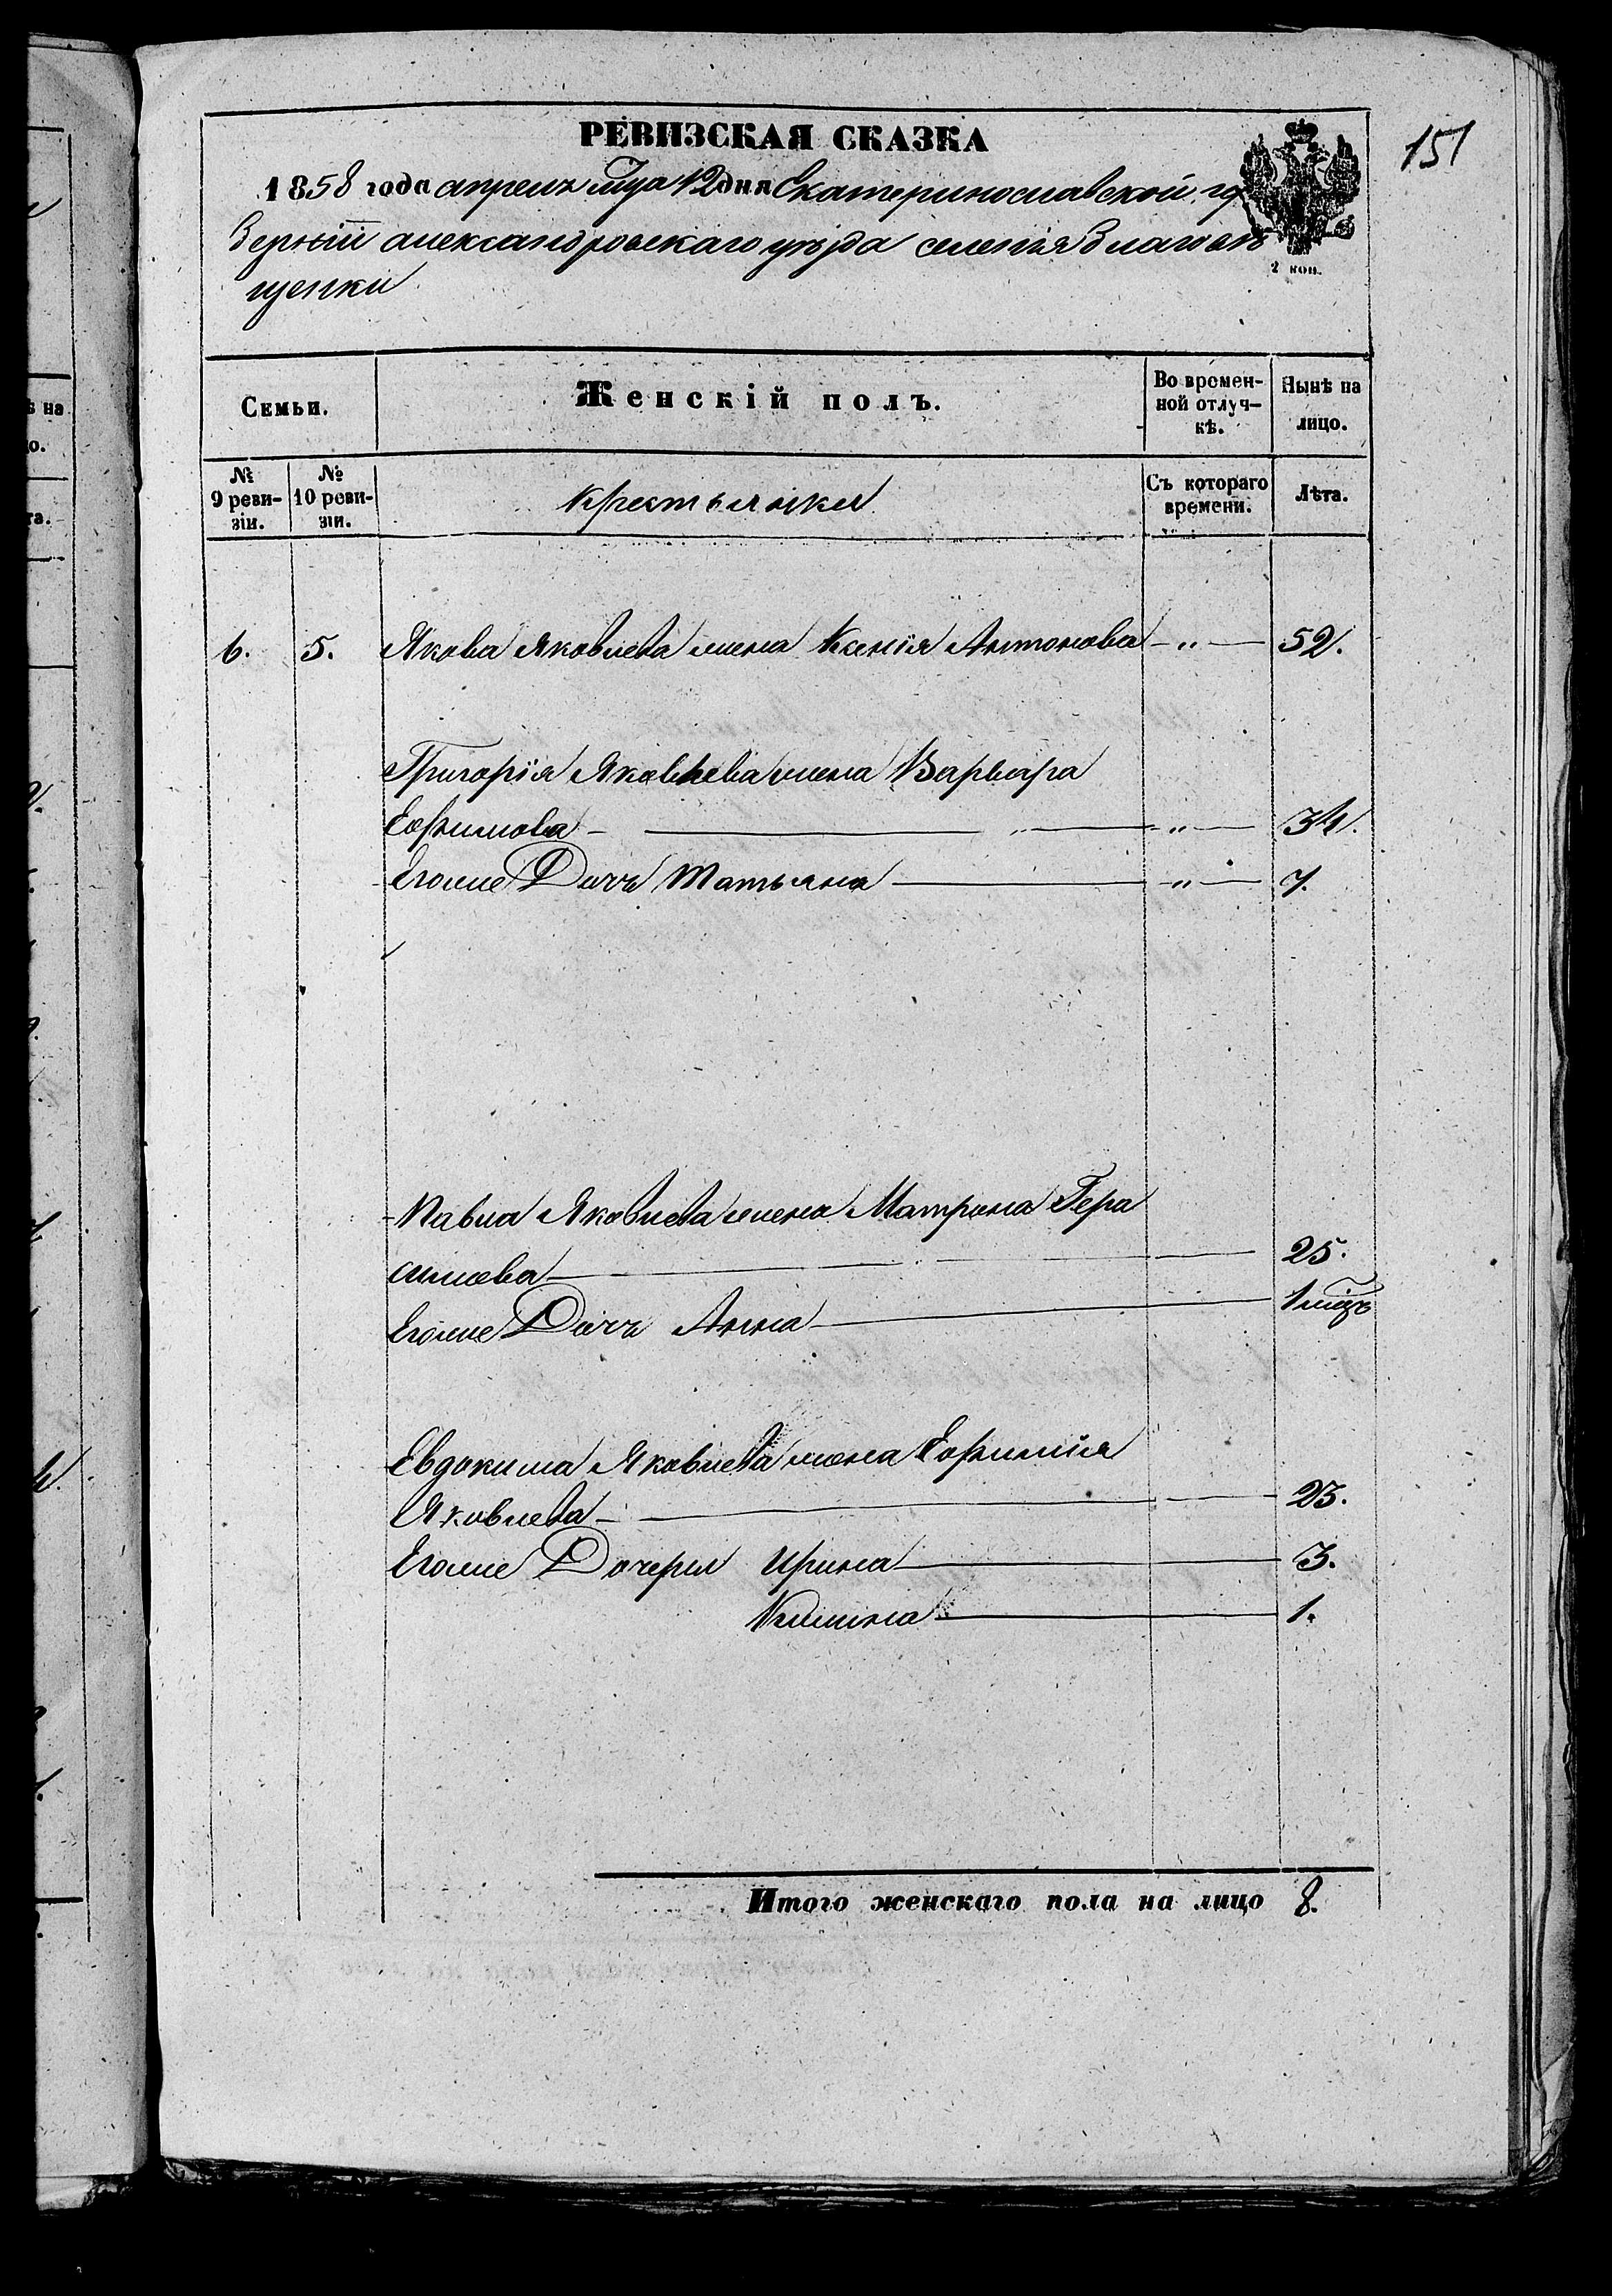 РЕВИЗСКАЯ СКАЗКА
151
1858 года апреля мца 12 дня Екатеринославской гу
берніи александровскаго уѣзда селенія Благовѣ
щенки
2 коп.
Семьи.
Женскій полъ.
Во времен-
ной отлуч-
кѣ.
Нынѣ на
лицо.
№
9 реви-
зіи.
№
10 реви-
зіи.
Крестьянки
Съ котораго
времени.
Лѣта.
6. 5. Якова Яковлева жена Ксенія Антонова — „ — 52.
Григорія Яковлева жена Варвара
Ефимова — „ — „ — 34.
Егоже Дочь Татьяна — „ — 7.
Павла Яковлева жена Матрона Гера
симова — 25.
Егоже Дочь Анна — 1 мцъ
Евдокима Яковлева жена Ефимія
Яковлева — 23.
Егоже Дочери Ирина — 3.
1.
Итого женскаго пола на лицо 8.
ѣ на
о.
та.